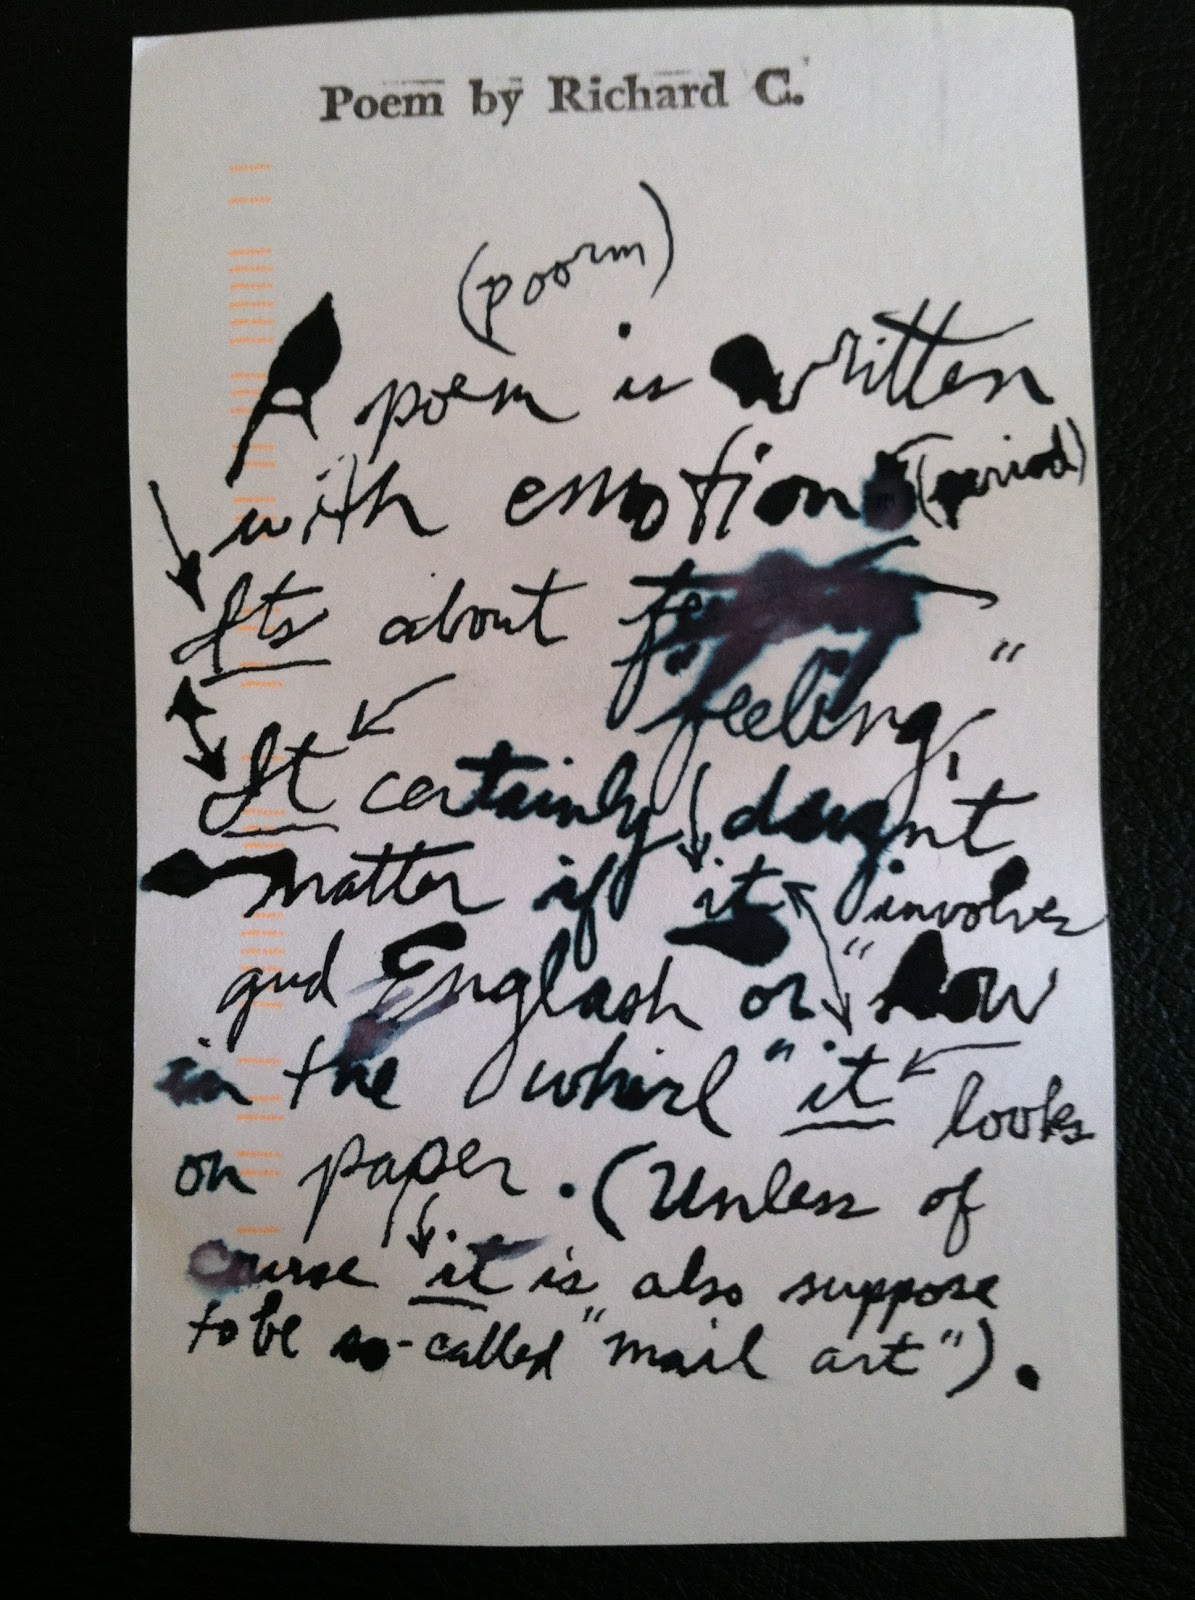 Poem by Richard C.
(poorm)
A poem is written
with emotion (period)
Its about
"feeling,"
It certainly doesn't
matter if it involves
gud Englash or "how
in the whirl" it looks
on paper. (Unless of
course it is also suppose
to be so-called "mail art").